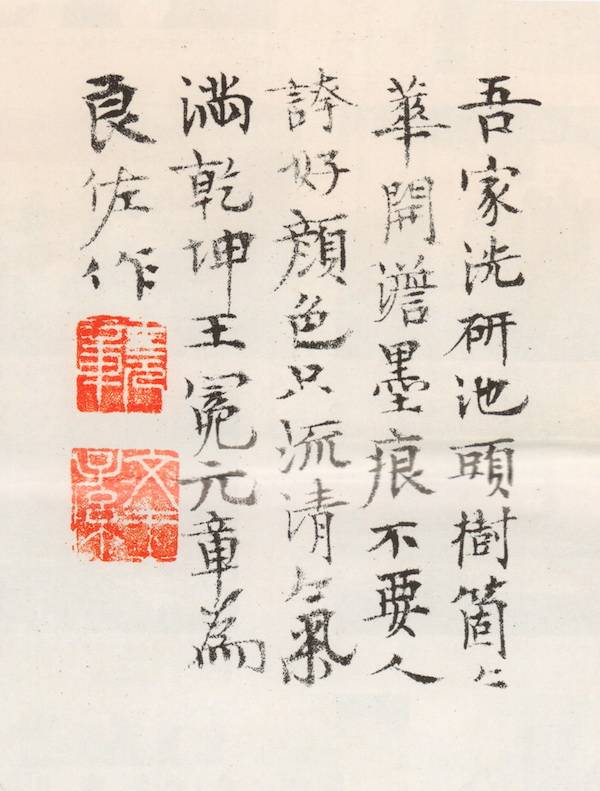 吾家洗研池頭樹箇〻
華開澹墨痕不要人
誇好顏色只流清氣
滿乾坤王冕元章為
良佐作
元章
文王子孫